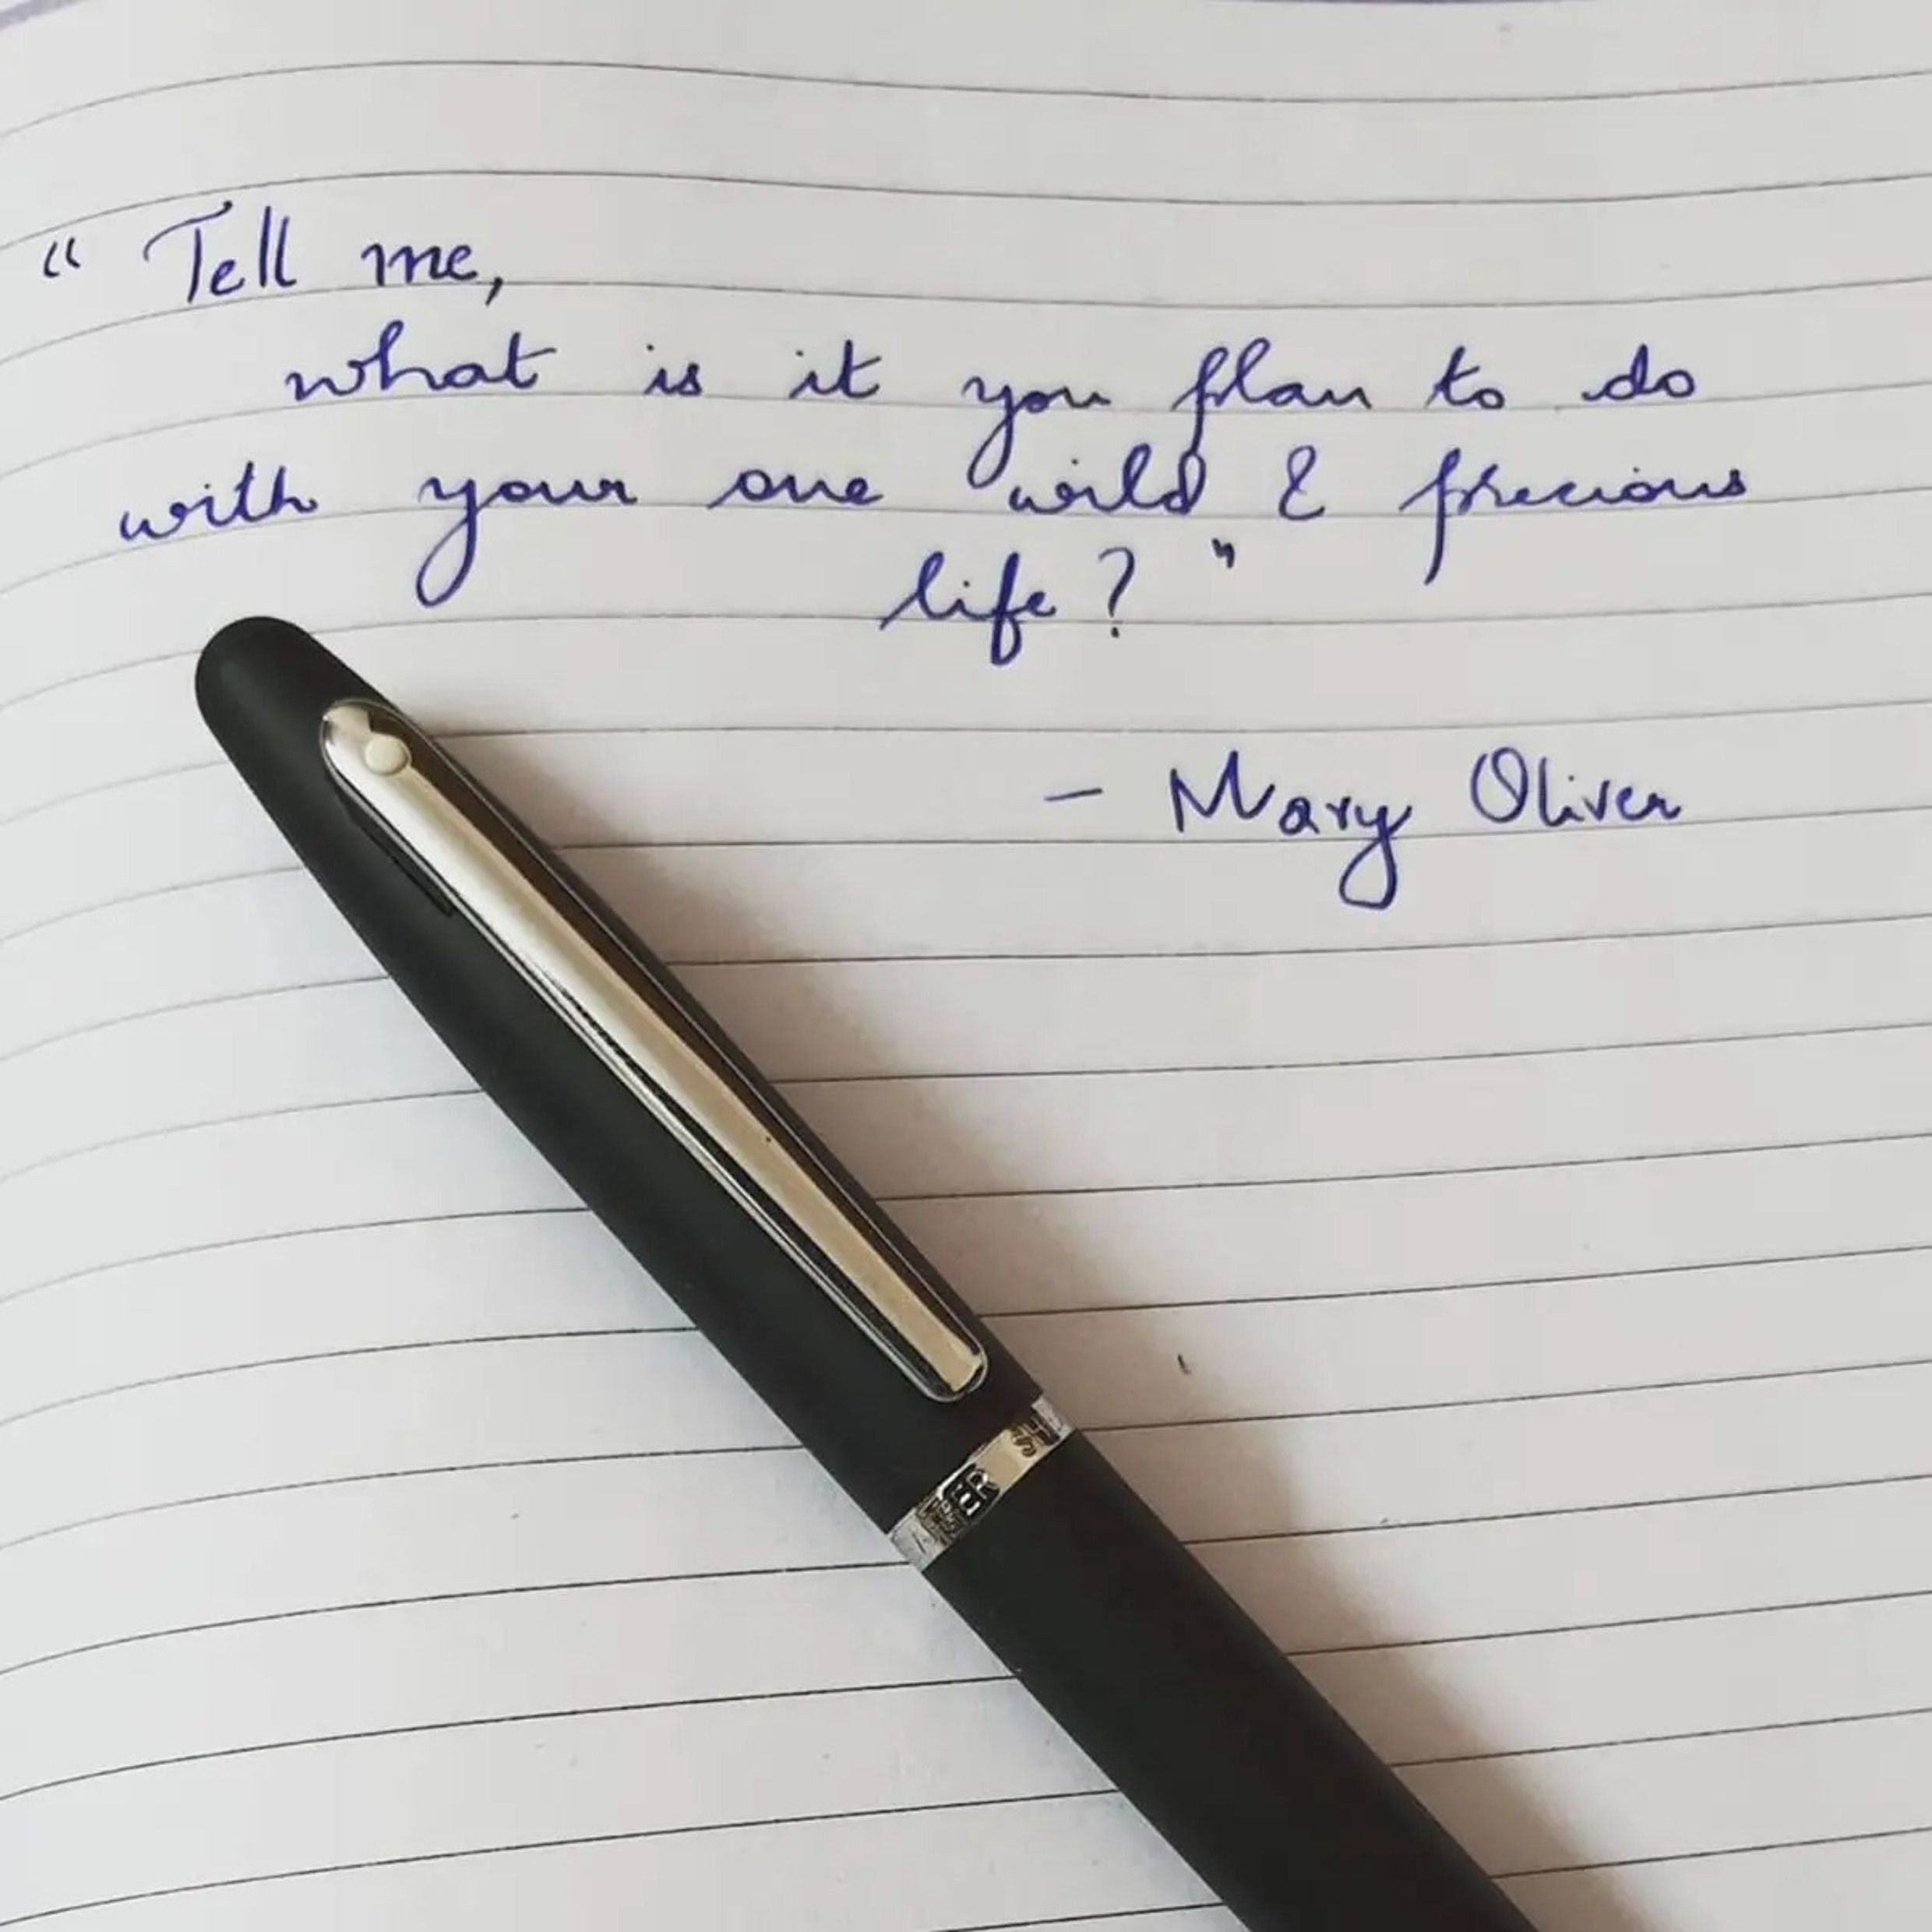 “ Tell me,
what is it you plan to do
with your one wild & precious
life? ”
- Mary Oliver